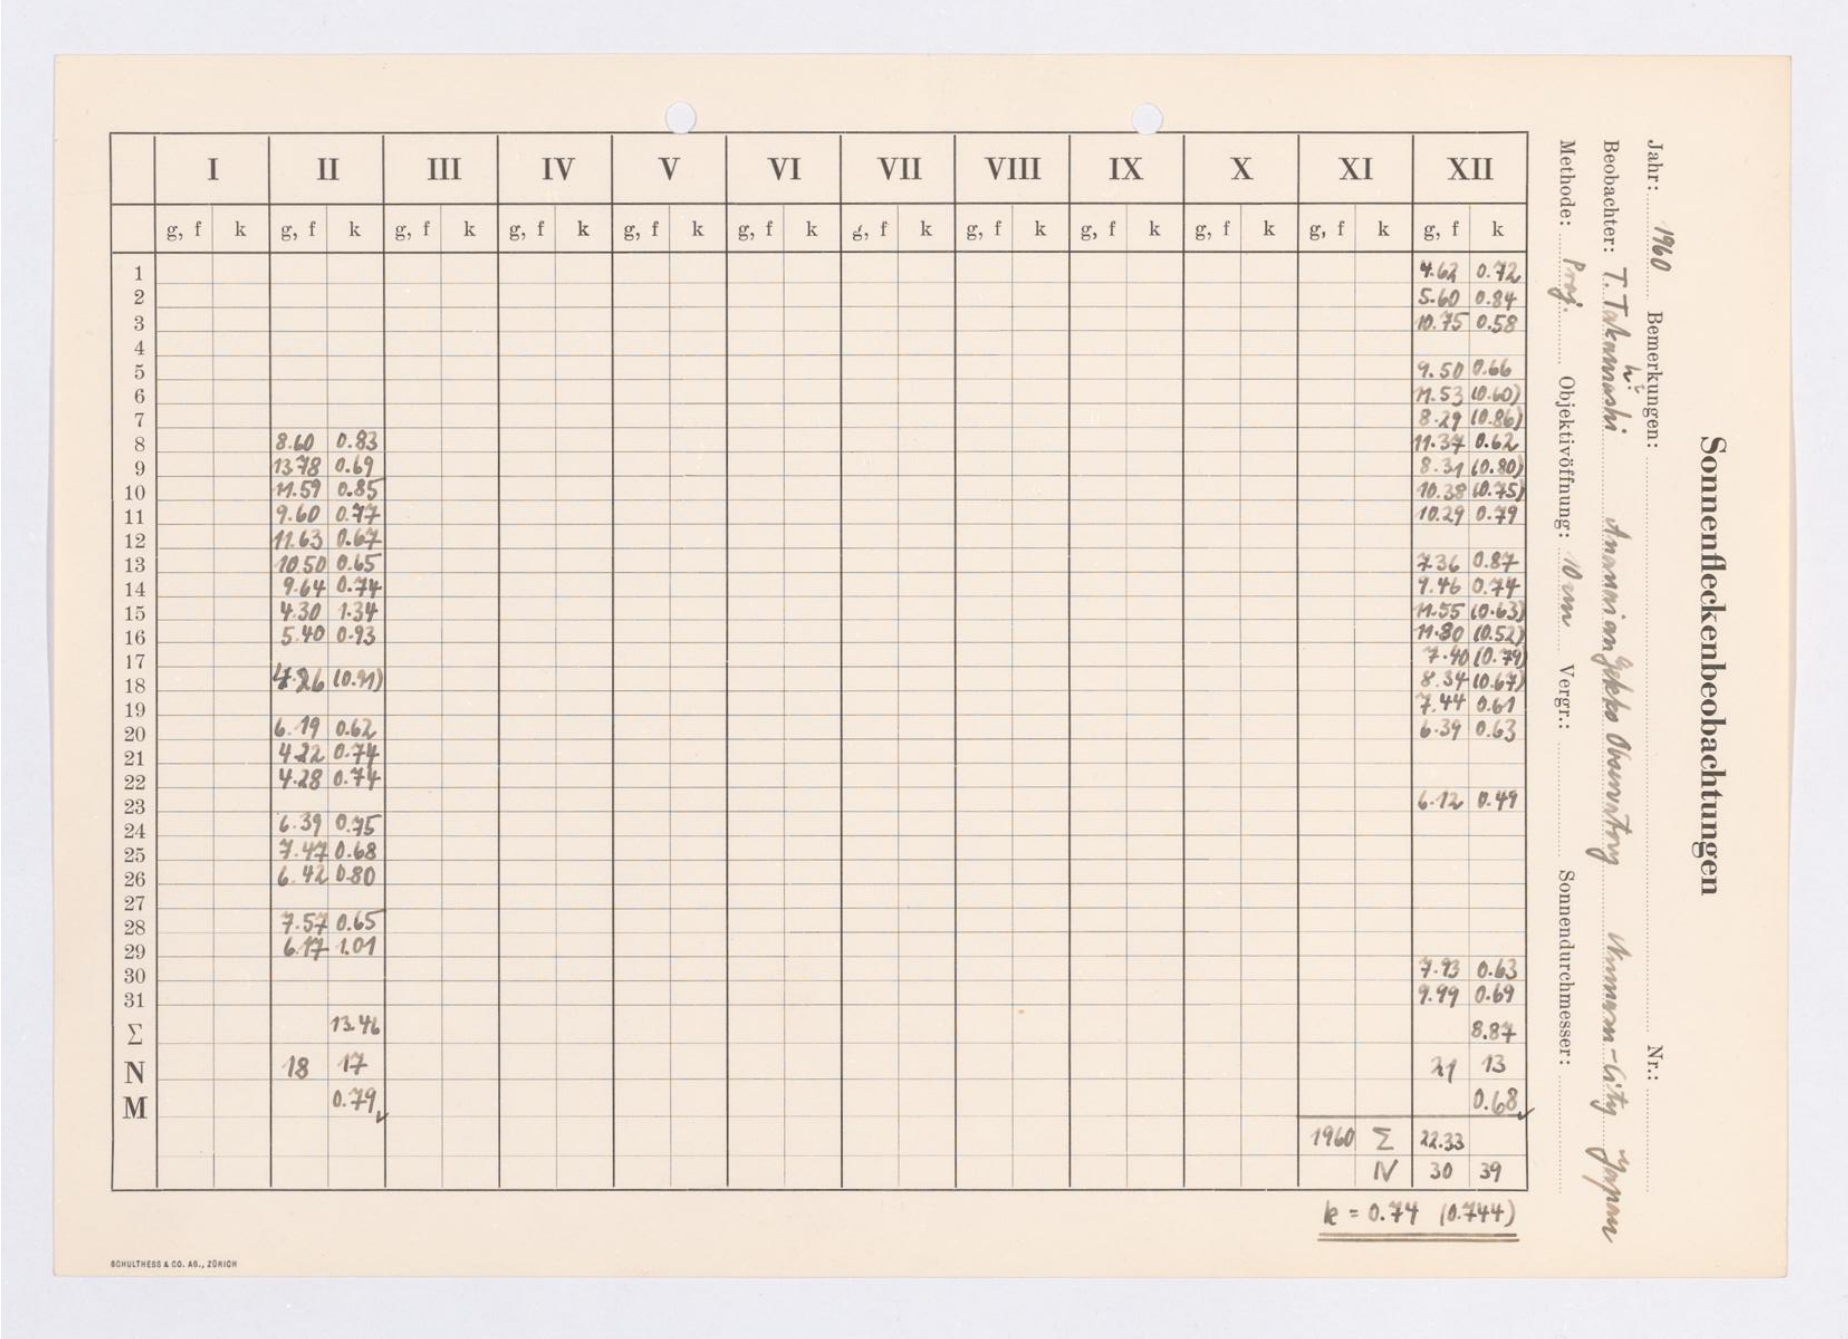 Sonnenfleckenbeobachtungen
Jahr: 1960 Bemerkungen: Nr.:
Beobachter: T. Observatory Japan
Methode: Proj. Objektivöffnung: 10 cm Vergr.: Sonnendurchmesser:
I II III IV V VI VII VIII IX X XI XII
g, f k g, f k g, f k g, f k g, f k g, f k g, f k g, f k g, f k g, f k g, f k g, f k
1 4.62 0.72
2 5.60 0.84
3 10.75 0.58
4
5 9.50 0.66
6 11.53 (0.60)
7 8.29 (0.86)
8 8.60 0.83 11.37 0.62
9 13.78 0.69 8.31 (0.80)
10 11.59 0.85 10.38 (0.75)
11 9.60 0.77 10.29 0.79
12 11.63 0.67
13 10.50 0.65 7.36 0.87
14 9.64 0.74 9.46 0.74
15 4.30 1.34 11.55 (0.63)
16 5.40 0.93 11.80 (0.52)
17 7.40 (0.79)
18 4.26 (0.91) 8.34 (0.67)
19 7.44 0.61
20 6.19 0.62 6.39 0.63
21 4.22 0.74
22 4.28 0.74
23 6.12 0.49
24 6.39 0.75
25 7.47 0.68
26 6.42 0.80
27
28 7.57 0.65
29 6.17 1.01
30 7.93 0.63
31 9.99 0.69
Σ 13.46 8.87
N 18 17 21 13
M 0.79 0.68
1960 Σ 22.33
N 30 39
k = 0.74 (0.744)
SCHULTHESS & CO. AG., ZÜRICH